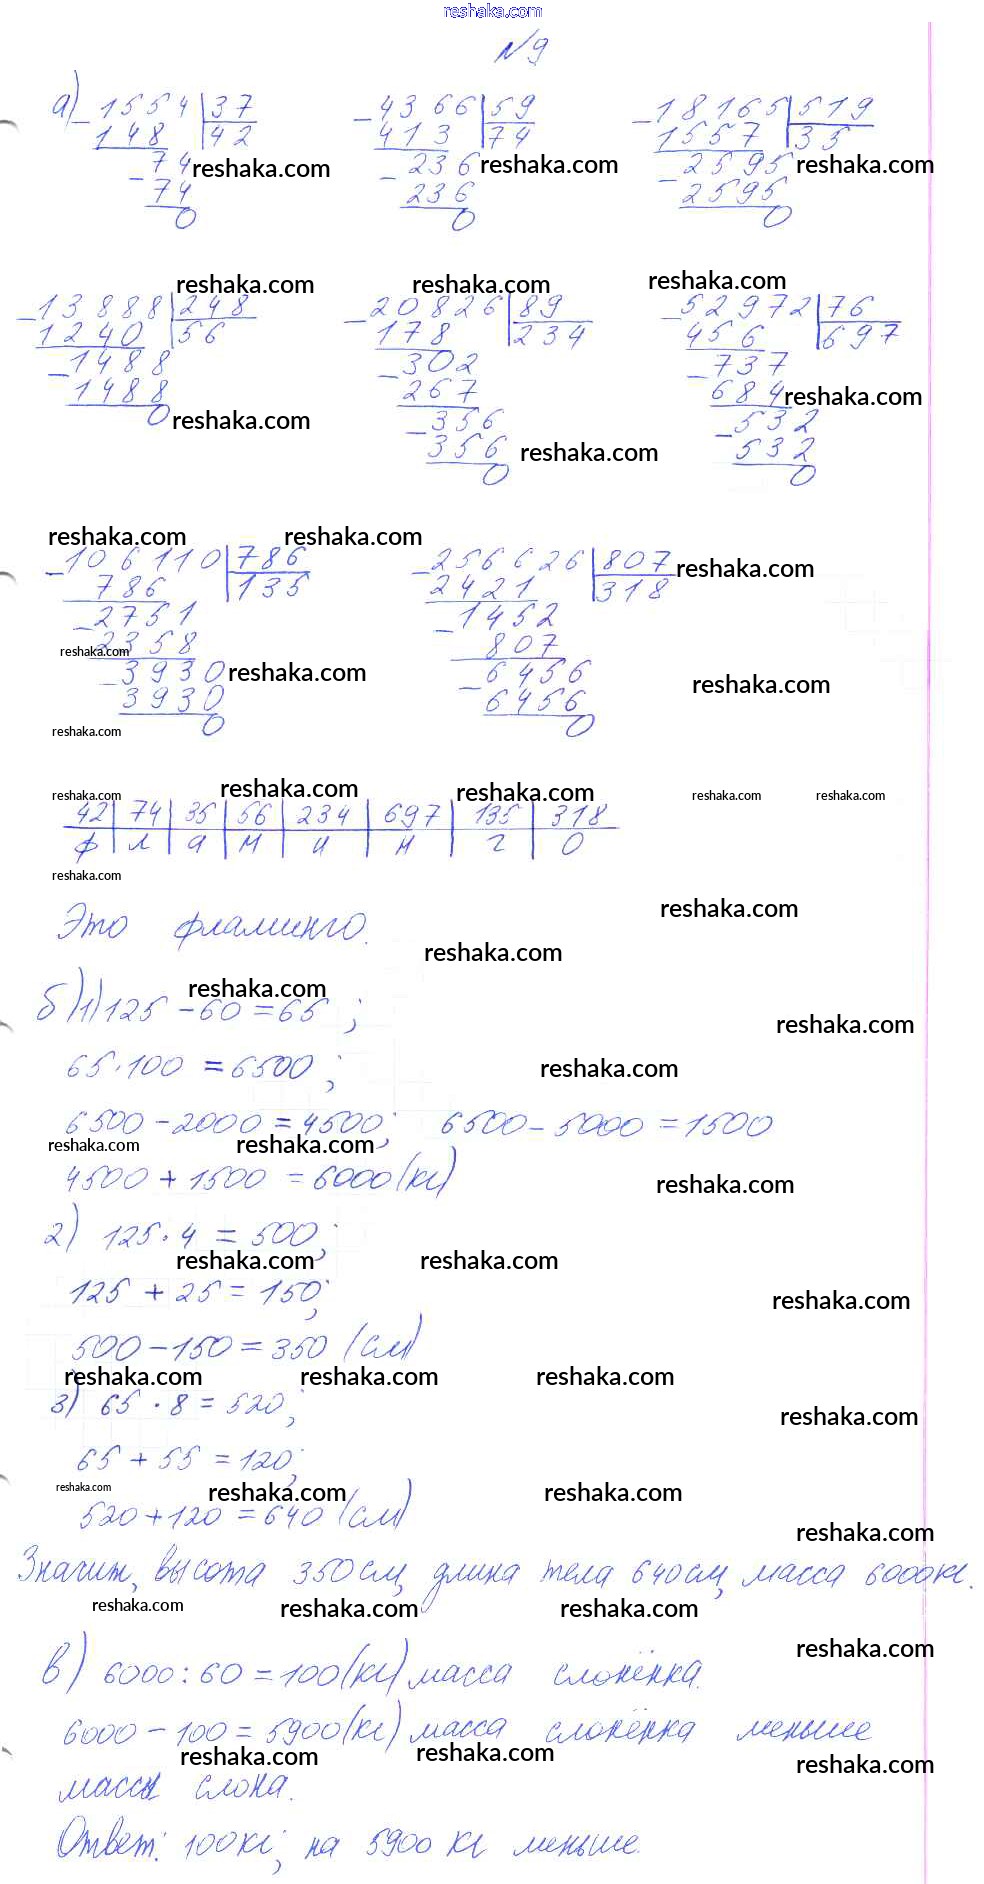 reshaka.com
№9
а) -1554 | 37   -4366 | 59   -18165 | 519
148 | 42   413 | 74   1557 | 35
-74 reshaka.com   -236 reshaka.com   -2595 reshaka.com
74   236   2595
0   0   0
reshaka.com reshaka.com reshaka.com
-13888 | 248   -20826 | 89   -52972 | 76
1240 | 56   178 | 234   456 | 697
-1488   -302   -737
1488   267   684 reshaka.com
0 reshaka.com   -356   -532
356 reshaka.com   532
0   0
reshaka.com reshaka.com
-106110 | 786   -256626 | 807 reshaka.com
786 | 135   2421 | 318
-2751   -1452
reshaka.com 2358   807
-3930 reshaka.com   -6456 reshaka.com
3930   6456
0   0
reshaka.com
reshaka.com reshaka.com reshaka.com reshaka.com reshaka.com
42 | 74 | 35 | 56 | 234 | 697 | 135 | 318
ф | л | а | м | и | н | г | о
reshaka.com
reshaka.com
Это фламинго.
reshaka.com
reshaka.com
б) 1) 125 - 60 = 65 ;
reshaka.com
65 · 100 = 6500 ; reshaka.com
6500 - 2000 = 4500; 6500 - 5000 = 1500
reshaka.com reshaka.com
4500 + 1500 = 6000 (кг) reshaka.com
2) 125 · 4 = 500;
reshaka.com reshaka.com
125 + 25 = 150; reshaka.com
500 - 150 = 350 (см)
reshaka.com reshaka.com reshaka.com
3) 65 · 8 = 520; reshaka.com
65 + 55 = 120;
reshaka.com reshaka.com reshaka.com
520 + 120 = 640 (см) reshaka.com
Значит, высота 350 см, длина тела 640 см, масса 6000 кг.
reshaka.com reshaka.com reshaka.com
reshaka.com
в) 6000 : 60 = 100 (кг) масса слонёнка.
6000 - 100 = 5900 (кг) масса слонёнка меньше
reshaka.com reshaka.com reshaka.com
массы слона.
Ответ: 100 кг; на 5900 кг меньше.